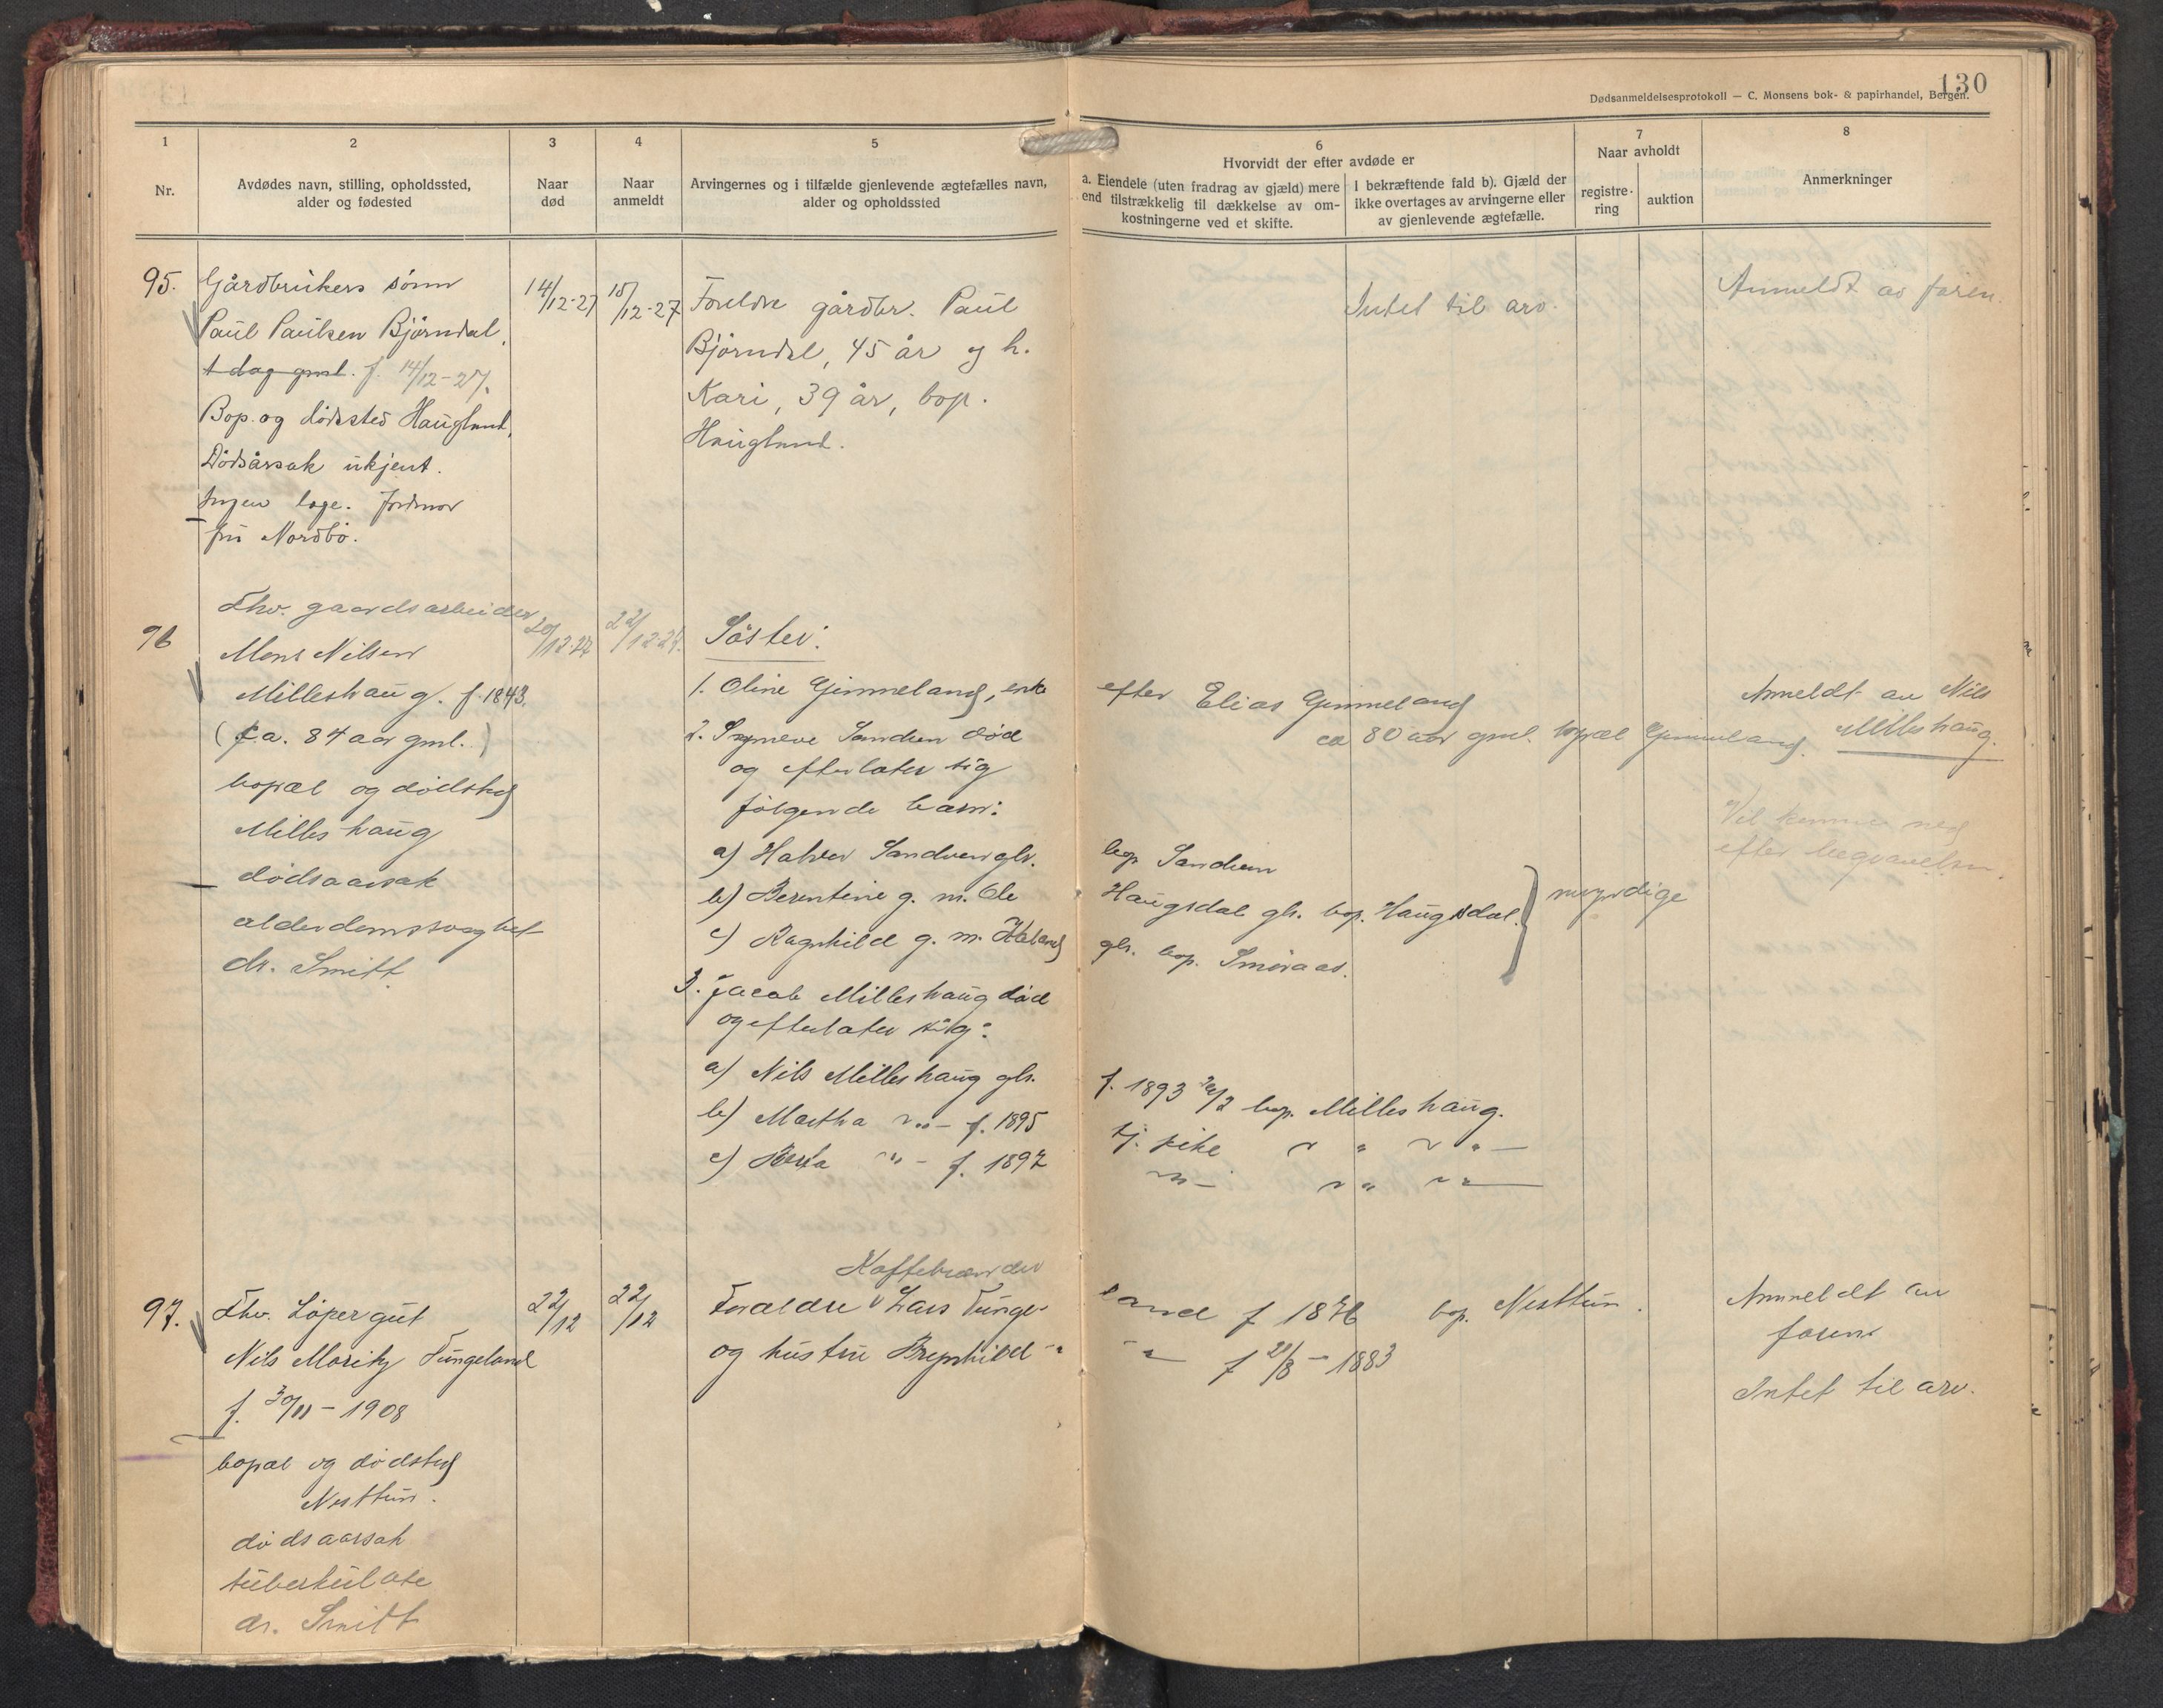 130
Dødsanmeldelsesprotokoll — C. Monsens bok- & papirhandel, Bergen.
1
Nr.
2
Avdødes navn, stilling, opholdssted,
alder og fødested
3
Naar
død
4
Naar
anmeldt
5
Arvingernes og i tilfælde gjenlevende ægtefælles navn,
alder og opholdssted
6
Hvorvidt der efter avdøde er
a. Eiendele (uten fradrag av gjæld) mere
end tilstrækkelig til dækkelse av om-
kostningerne ved et skifte.
I bekræftende fald b). Gjæld der
ikke overtages av arvingerne eller
av gjenlevende ægtefælle.
7
Naar avholdt
registre-
ring
auktion
8
Anmerkninger
95.
Gårdbrukers sønn
Paul Paulsen Bjørndal,
1 dag gml. f. 14/12-27.
Bop. og dødssted Haugland,
Dødsårsak ukjent.
Ingen læge. Jordmor
fru Nordbø.
14/12-27
15/12-27
Foreldre gårdbr. Paul
Bjørndal, 45 år og h.
Kari, 39 år, bop.
Haugland.
Intet til arv.
Anmeldt av faren.
96
Fhv. gaardsarbeider
Mons Nilsen
Milleshaug. f. 1843.
(ca. 84 aar gml.)
bopæl og dødsted
Milleshaug
dødsaarsak
alderdomssvaghet
dr. Smitt.
20/12-27
22/12-27.
Søster:
1. Oline Gimmeland, enke
efter Elias Gimmeland
ca 80 aar gml. bopæl Gimmeland.
2. Synneve Sandven død
og efterlater sig
følgende barn:
a) Halvor Sandven gbr.
bop Sandven
b) Berentine g. m. Ole
Haugsdal gbr. bop. Haugsdal.
c) Ragnhild g. m. Håland
gbr. bop. Smøraas.
myndige
3. Jacob Milleshaug død
og efterlater sig:
a) Nils Milleshaug gbr.
f. 1893 bop. Milleshaug.
b) Martha —"— f. 1895
tj. pike " "—
c) Berta —"— f. 1897
—"— " "—
Anmeldt av Nils
Milleshaug.
Vil komme ned
efter begravelsen.
97.
Fhv. Løpergut
Nils Moritz Tungeland
f. 30/11-1908
bopæl og dødsted
Nesttun.
dødsaarsak
tuberkulose
dr. Smitt
22/12
22/12
Kaffebrænder
Forældre Lars Tunge-
land f 1876 bop. Nesttun.
og hustru Brynhild —"
"— f 21/8-1883
Anmeldt av
faren
Intet til arv.